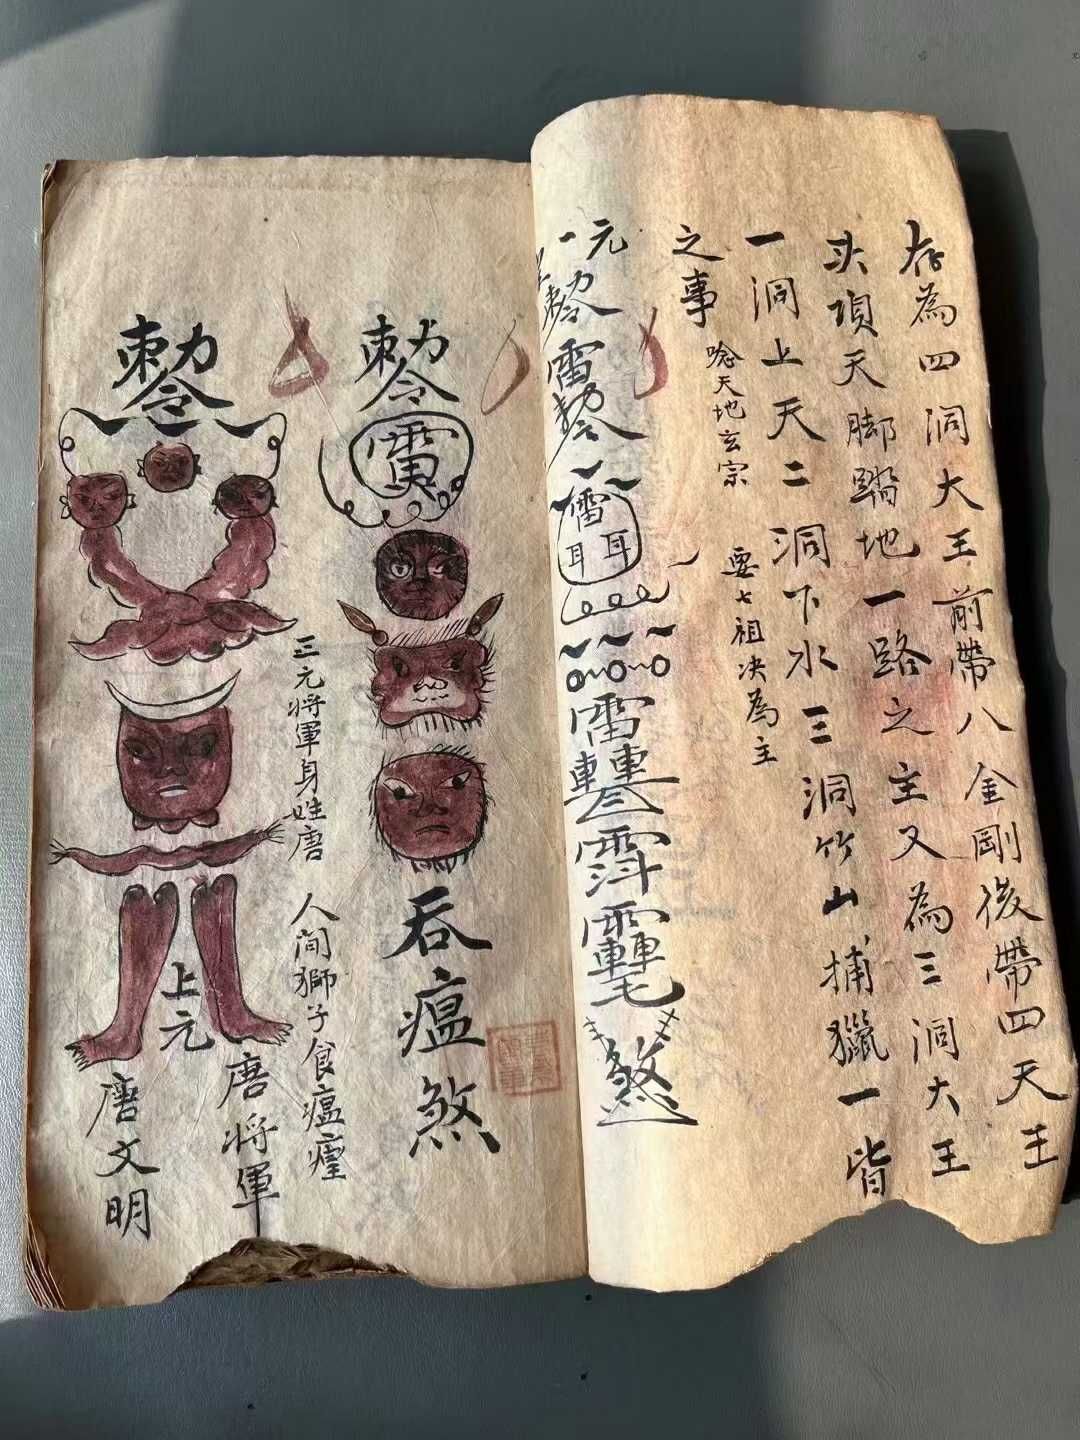 存為四洞大王前帶八金剛後帶四天王
头頂天脚踏地一路之主又為三洞大王
一洞上天二洞下水三洞竹山捕獵一皆
之事
唸天地玄宗 要七祖决為主
元
一勅令
雷
雷
耳耳
煞
勅令
吞瘟煞
正元將軍身姓唐 人间獅子食瘟瘴
勅令
上元
唐將軍
唐文明